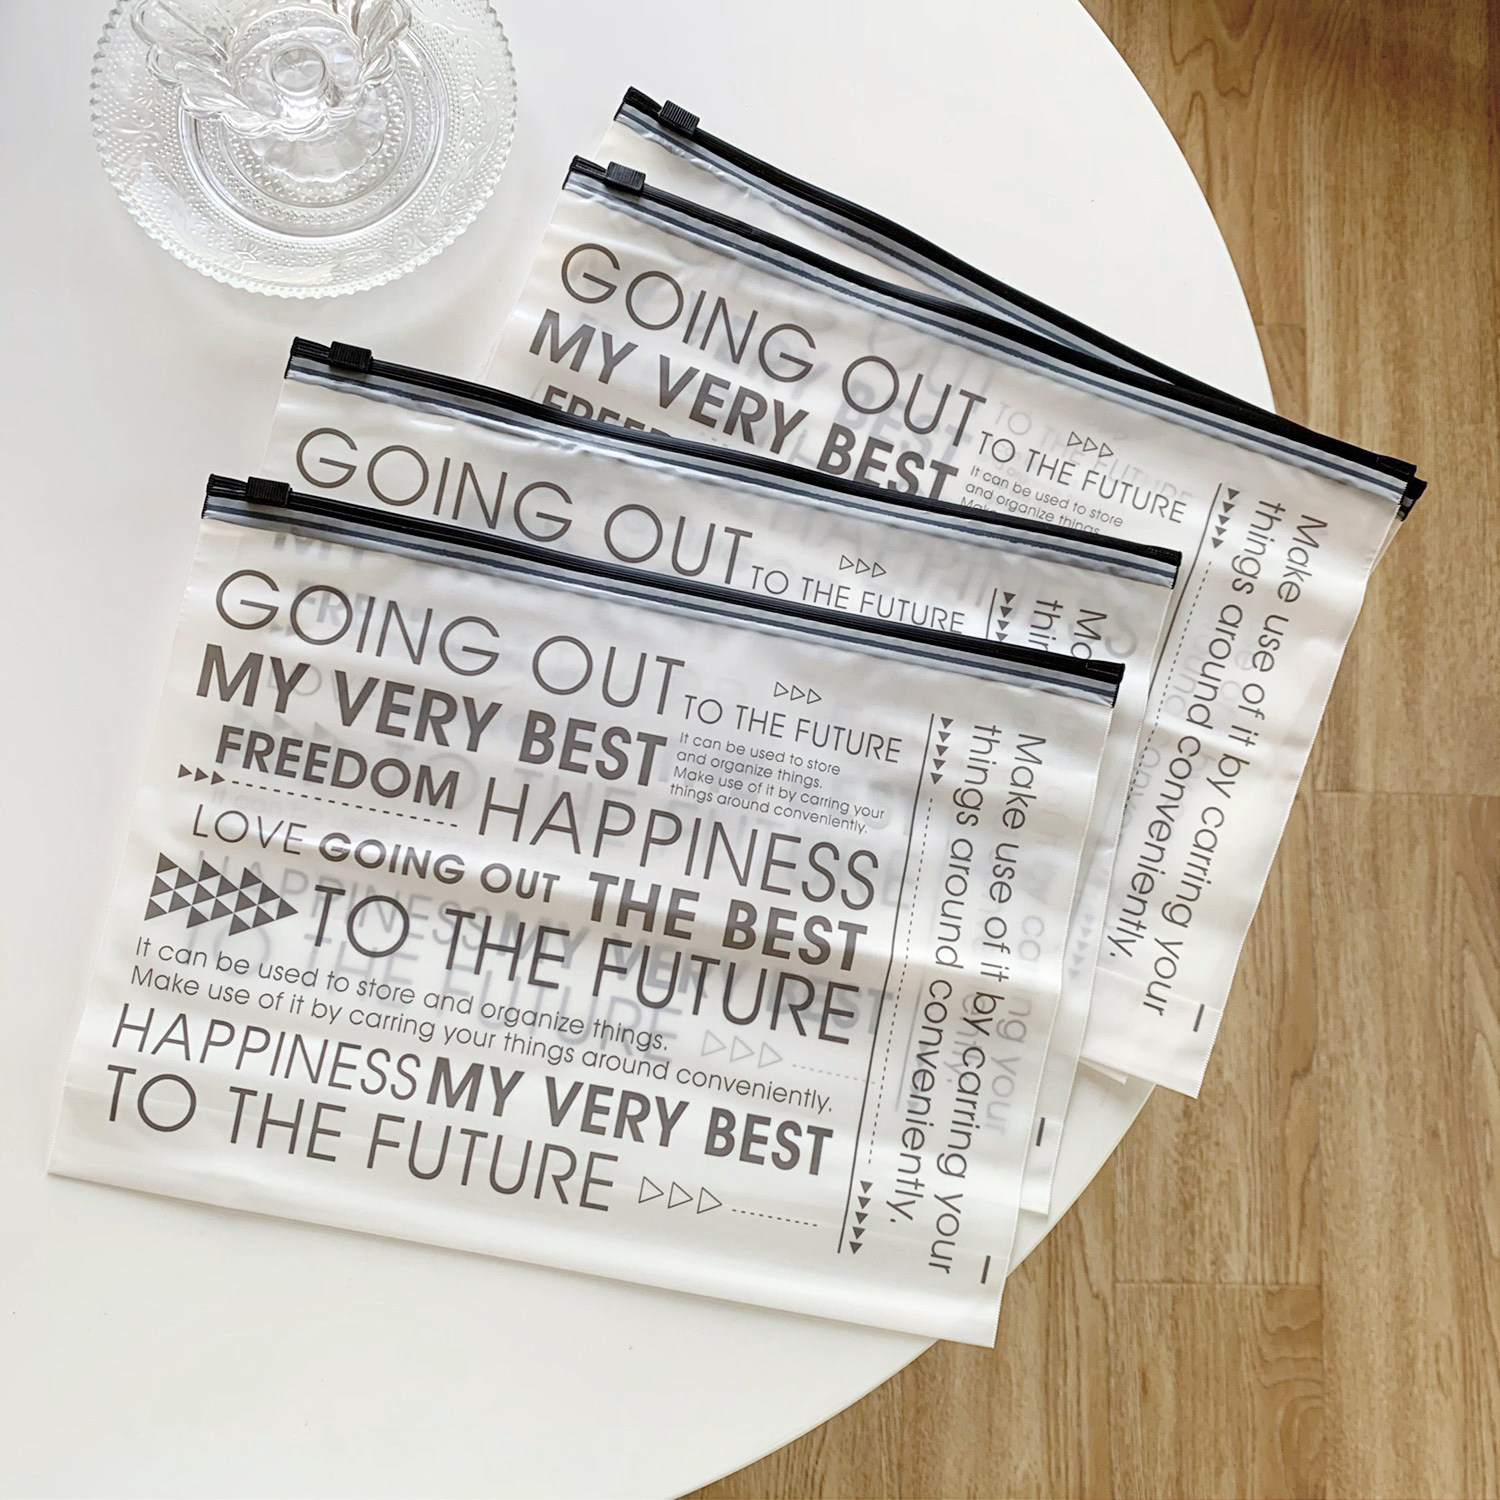 GOING OUT
TO THE FUTURE
MY VERY BEST
It can be used to store
and organize things.
Make use of it by carring your
things around conveniently.
FREEDOM HAPPINESS
LOVE GOING OUT THE BEST
TO THE FUTURE
It can be used to store and organize things.
Make use of it by carring your things around conveniently.
HAPPINESS MY VERY BEST
TO THE FUTURE
Make use of it by carring your
things around conveniently.
GOING OUT
TO THE FUTURE
GOING OUT
TO THE FUTURE
MY VERY BEST
It can be used to store
and organize things.
Make use of it by carring your
things around conveniently.